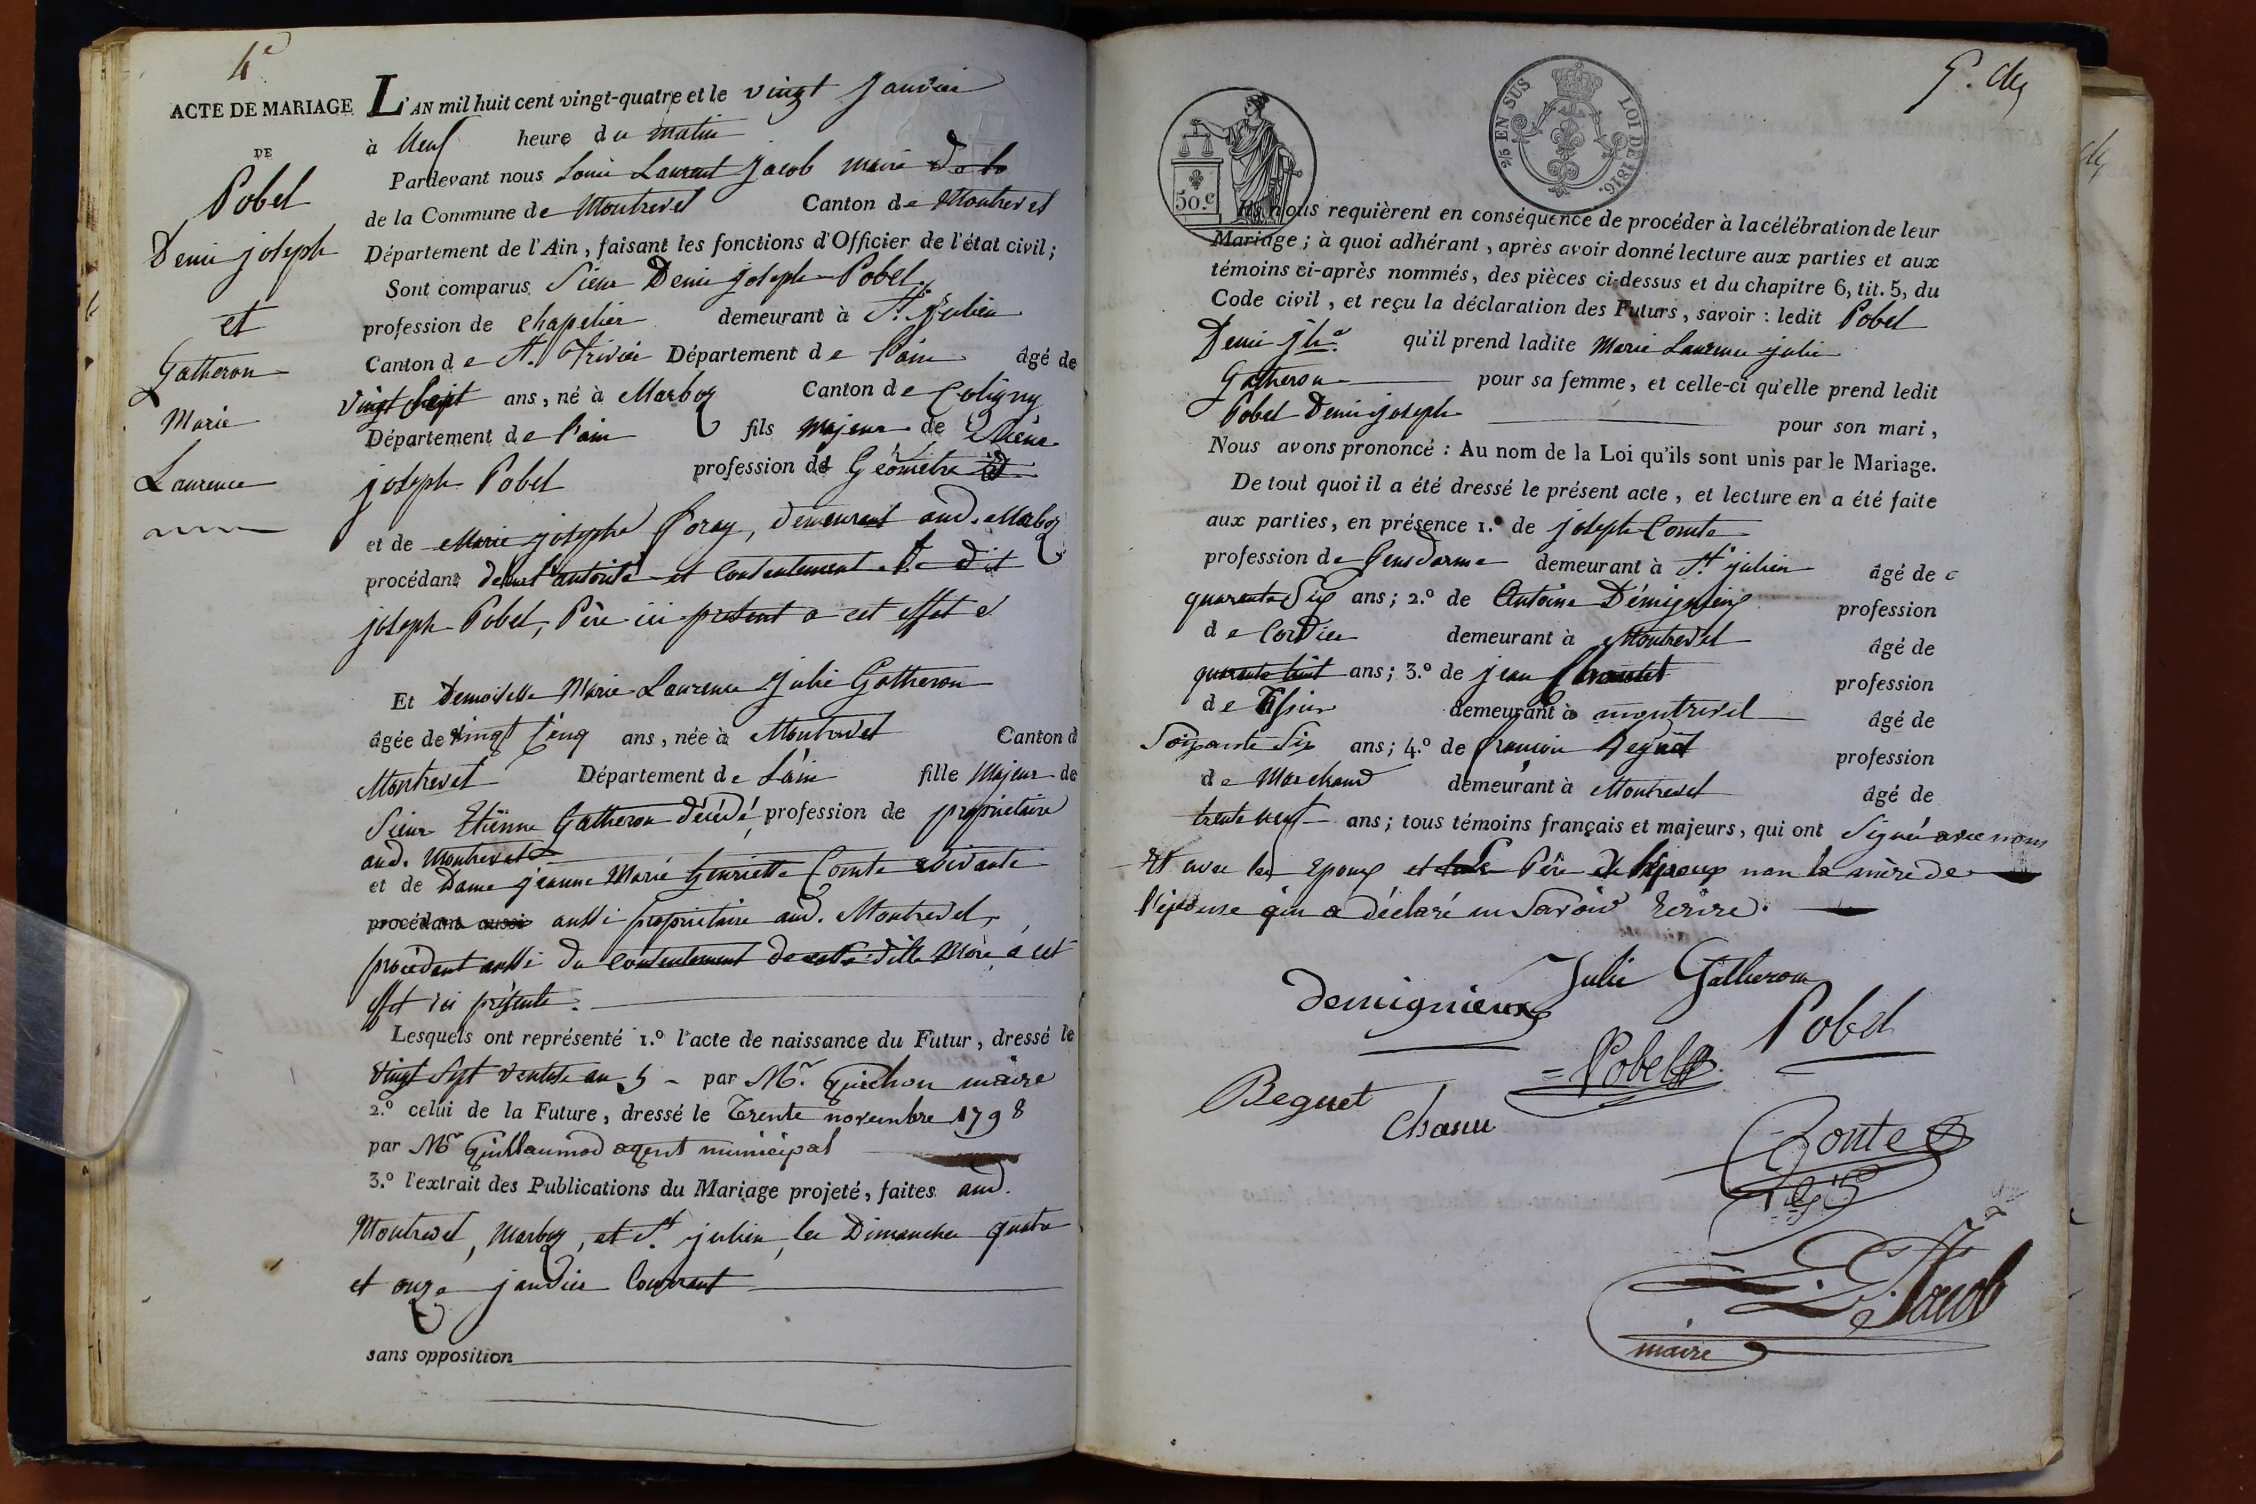 4e
ACTE DE MARIAGE
DE
Pobel
Denis joseph
et
Gatheron
Marie
Laurence
L'AN mil huit cent vingt-quatre et le vingt Janvier
à Neuf heure du matin
Pardevant nous Louis Laurent Jacob maire de la
de la Commune de Montrevel Canton de Montrevel
Département de l'Ain, faisant les fonctions d'Officier de l'état civil;
Sont comparus Sieur Denis joseph Pobel
profession de chapelier demeurant à St. Julien
Canton de St. Trivier Département de l'ain âgé de
vingt Sept ans, né à Marboz Canton de Coligny
Département de l'ain fils majeur de Sieur
joseph Pobel profession de Géometre
et de Marie josephe Poray, demeurant aud. Marboz
procédant de l'autorité et Consentement du dit
joseph Pobel, Père ici présent a cet effet
Et Demoiselle Marie Laurence Julie Gatheron
âgée de vingt Cinq ans, née à Montrevel Canton d
Montrevel Département de L'ain fille Majeur de
Sieur Etienne Gatheron décédé, profession de propriétaire
aud. Montrevel
et de Dame jeanne Marie henriette Comte vivante
procédant aussi aussi propriétaire aud. Montrevel,
procédant aussi du consentement de sa dite Mère à cet
effet ici présente.
Lesquels ont représenté 1.º l'acte de naissance du Futur, dressé le
vingt Sept ventose an 5 - par Mr. Guichon maire
2.º celui de la Future, dressé le Trente novembre 1798
par Mr Guillaumod agent municipal
3.º l'extrait des Publications du Mariage projeté, faites aud.
Montrevel, Marboz, et St. julien, les Dimanches quatre
et onze janvier Courrant
sans opposition
2/5 EN SUS LOI DE 1816.
50.c
Ils nous requièrent en conséquence de procéder à la célébration de leur
Mariage; à quoi adhérant, après avoir donné lecture aux parties et aux
témoins ci-après nommés, des pièces ci-dessus et du chapitre 6, tit. 5, du
Code civil, et reçu la déclaration des Futurs, savoir: ledit Pobel
Denis jh. qu'il prend ladite Marie Laurence julie
Gatheron pour sa femme, et celle-ci qu'elle prend ledit
Pobel Denis joseph pour son mari,
Nous avons prononcé: Au nom de la Loi qu'ils sont unis par le Mariage.
De tout quoi il a été dressé le présent acte, et lecture en a été faite
aux parties, en présence 1.º de joseph Comte
profession de Gensdarme demeurant à St. julien âgé de
quarante Six ans; 2.º de Antoine Démignieux profession
de Cordier demeurant à Montrevel âgé de
quarante huit ans; 3.º de jean profession
de Tissier demeurant à montrevel âgé de
Soixante Six ans; 4.º de françois Beguet profession
de Marchand demeurant à Montrevel âgé de
trente neuf ans; tous témoins français et majeurs, qui ont Signé avec nous
et avec les Epoux et le Père de l'époux non la mère de
l'épouse qui a déclaré ne Savoir Ecrire.
Julie Gatheron
Demignieux
Pobel
Pobel
Beguet
Chanu
Comte
L. L. Jacob
maire